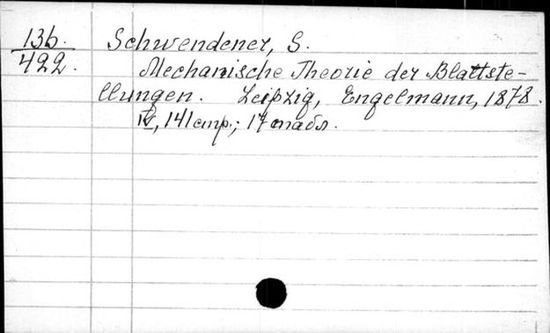 13b. Schwendener, S.
422. Mechanische Theorie der Blattste-
llungen. Leipzig, Engelmann, 1878.
IV, 141 стр.; 17 табл.